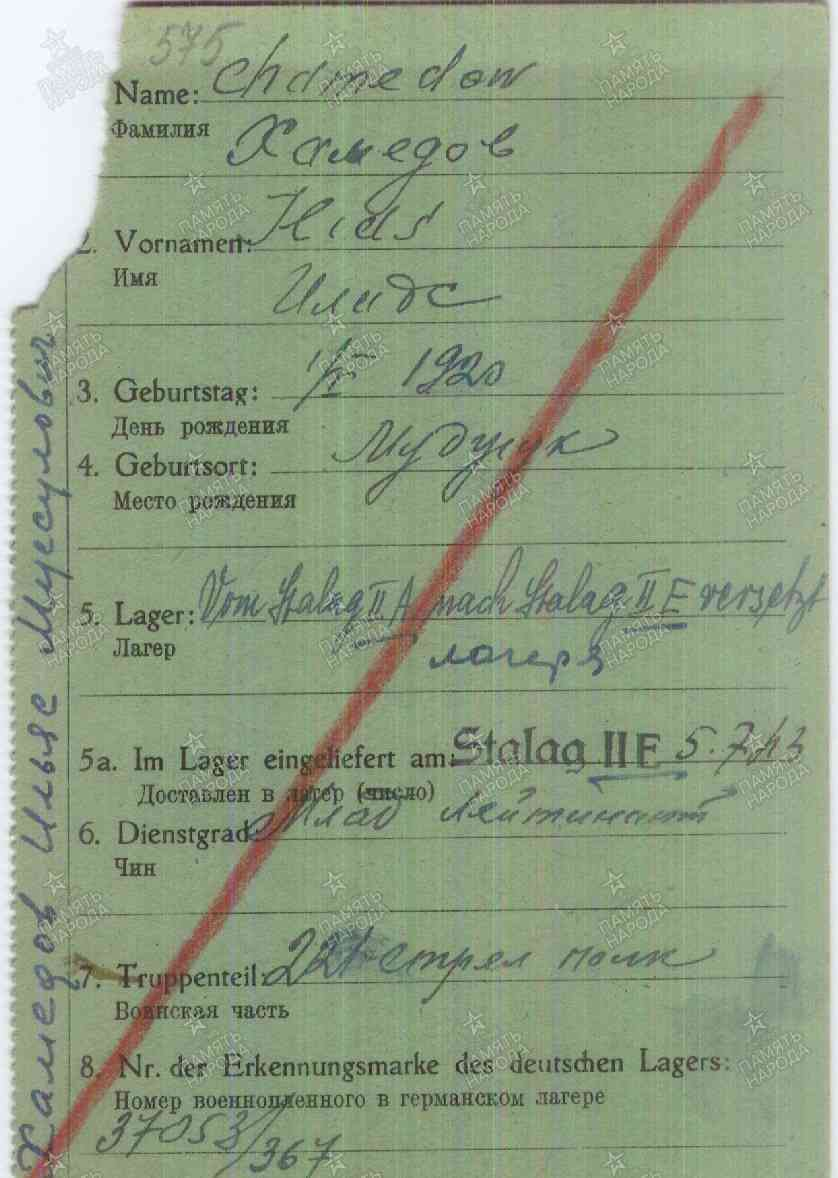 575
Name: Chamedow
Фамилия Хамедов
2. Vornamen: Ilias
Имя Илиас
3. Geburtstag: 1920
День рождения
4. Geburtsort:
Место рождения
5. Lager: Vom Stalag II A nach Stalag II E versetzt
Лагер лагеря
5a. Im Lager eingeliefert am: Stalag II E 5.7.43
Доставлен в лагер (число)
6. Dienstgrad: Млад Лейтинант
Чин
7. Truppenteil: стрел полк
Воинская часть
8. Nr. der Erkennungsmarke des deutschen Lagers:
Номер военнопленного в германском лагере
37053/367
Хамедов Ильяс
ПАМЯТЬ НАРОДА